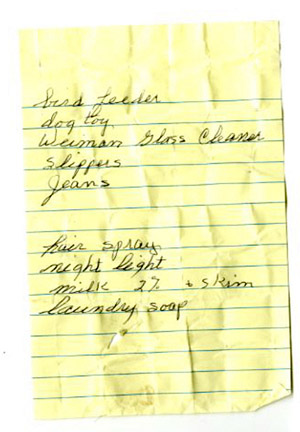 bird feeder
dog toy
Weiman Glass Cleaner
slippers
Jeans
hair spray
night light
milk 2% + skim
laundry soap